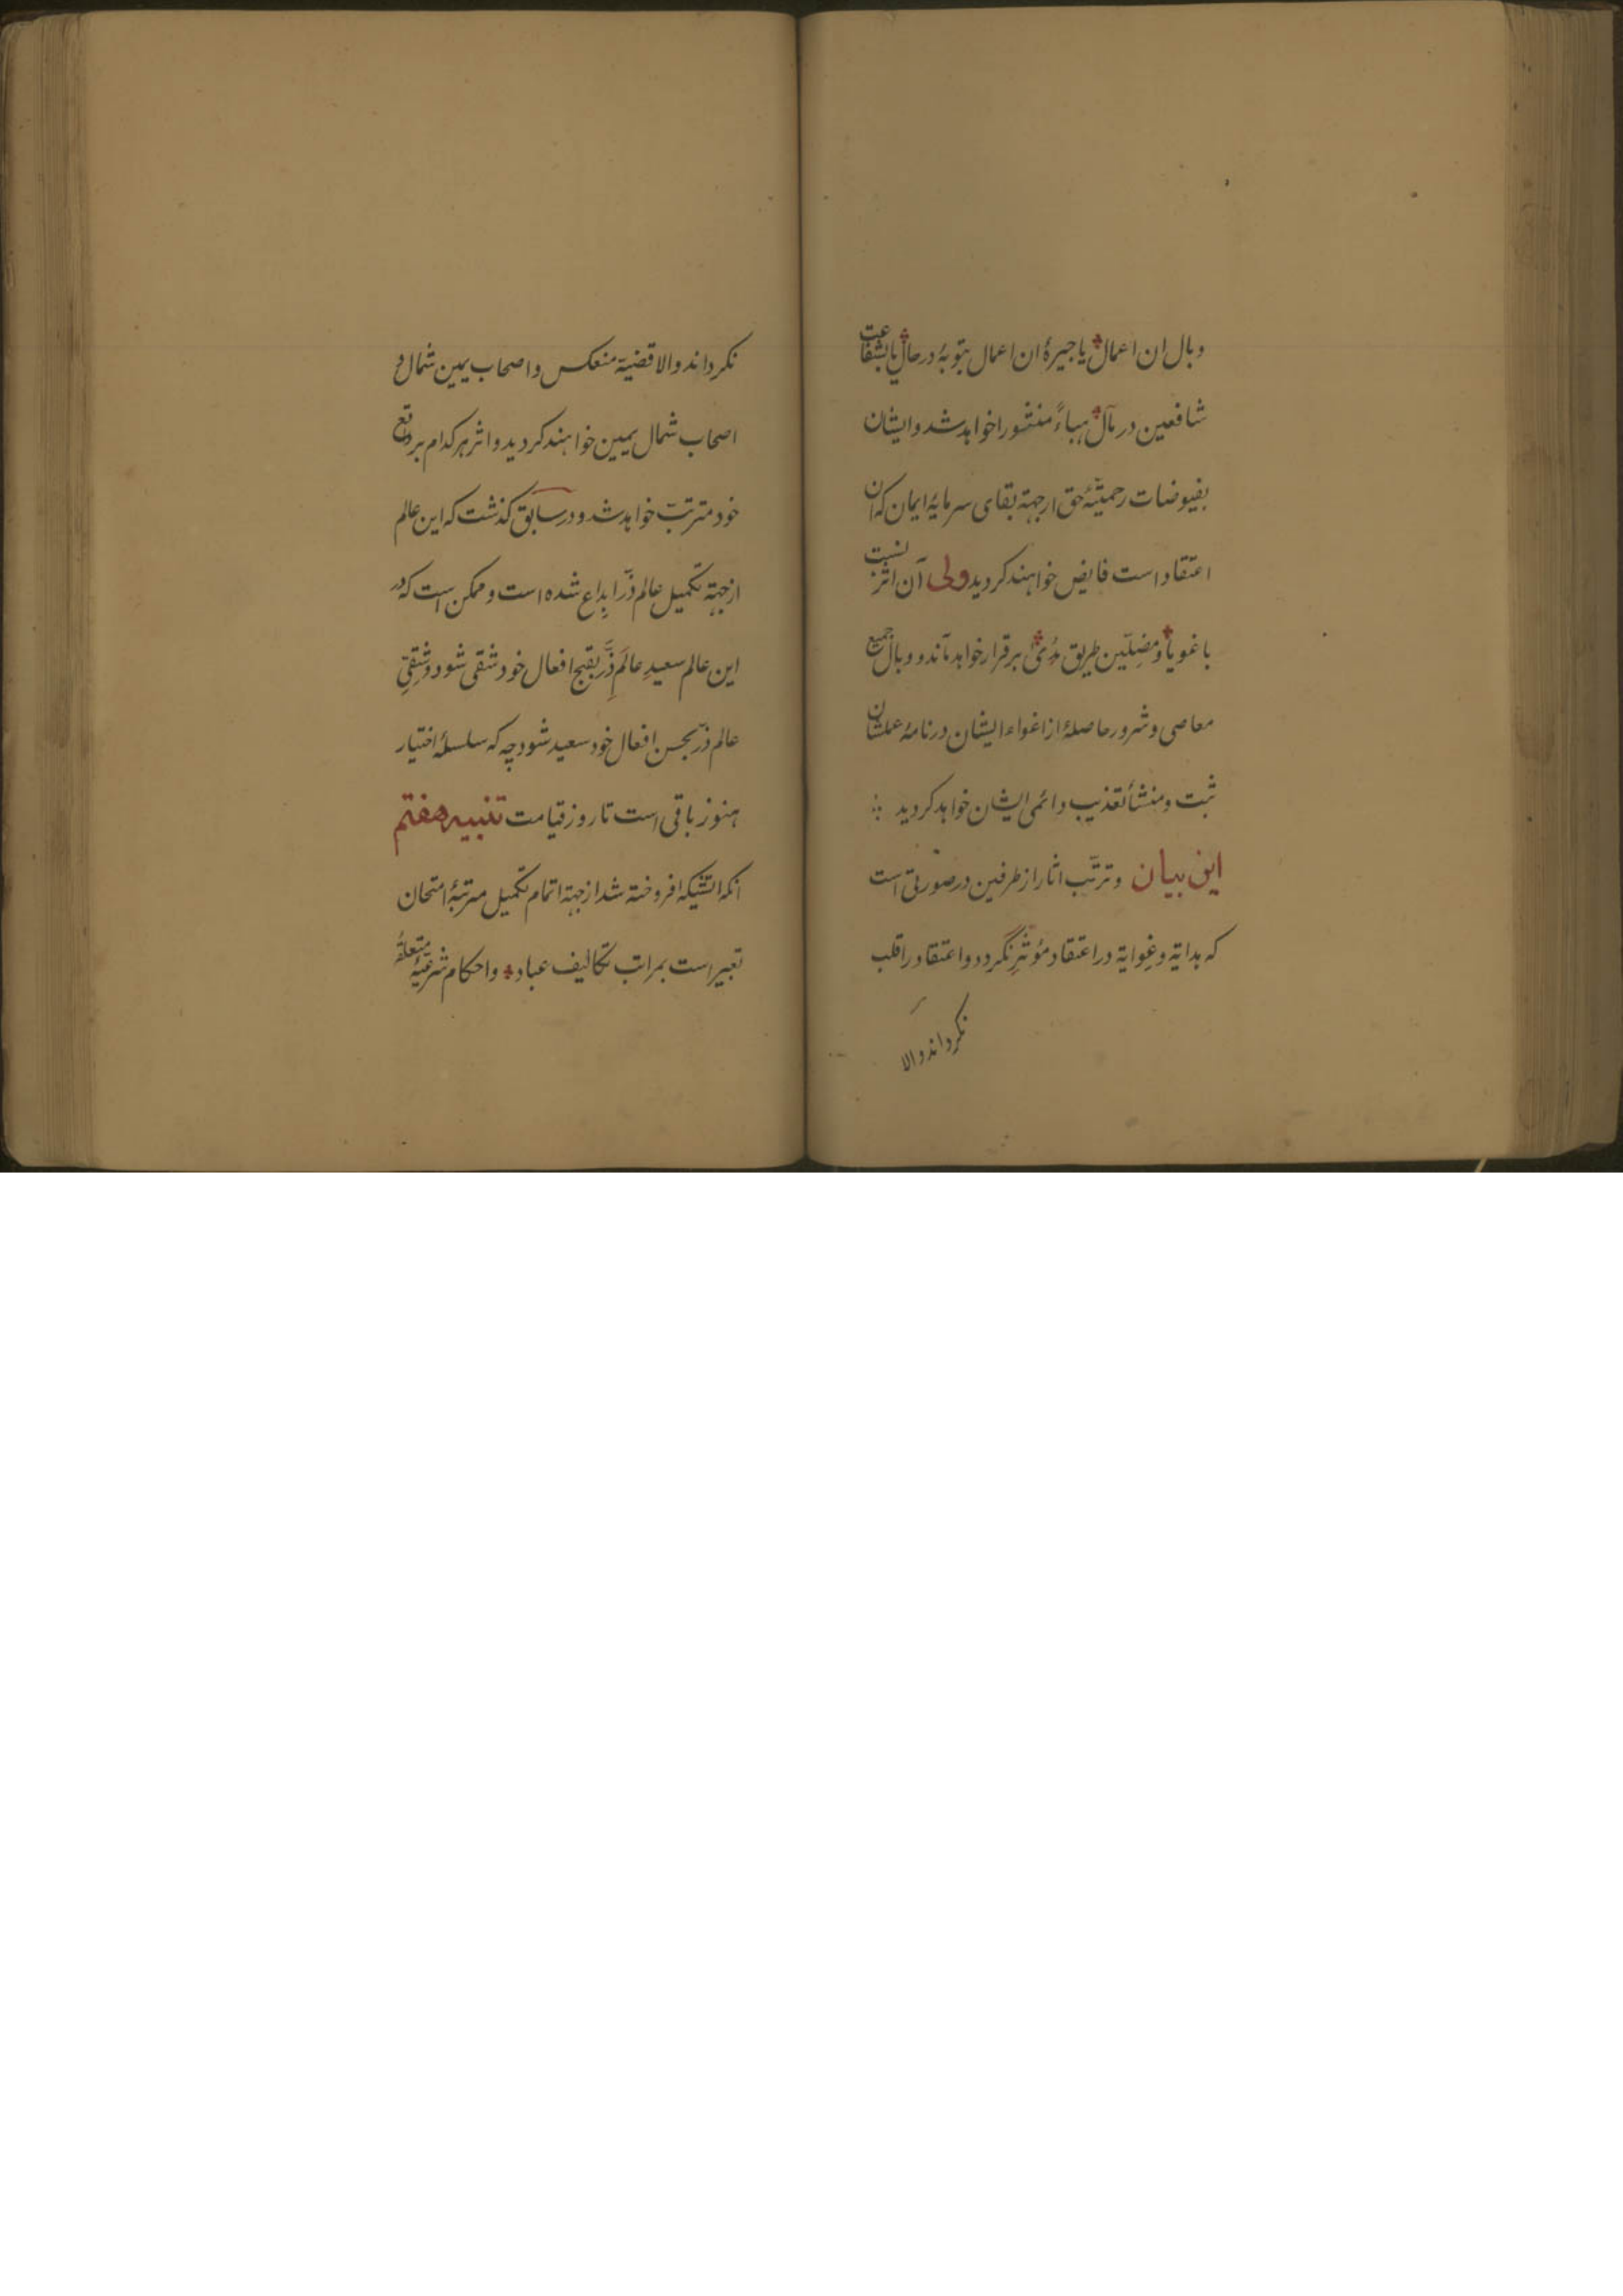 وبال ان اعمال یا جیرهٔ ان اعمال بتوبهٔ در حال یا بشفاعت
شافعین در مآل هباءً منثورا خواهد شد و ایشان
بفیوضات رحمیّهٔ حق ازجهة بقای سرمایهٔ ایمان که آن
اعتقاد است فایض خواهند کردید ولی آن اثر نسبت
باغویا و مضلّین طریق هدیٰ برقرار خواهد ماند و وبال جمیع
معاصی و شرور حاصلهٔ از اغواء ایشان در نامهٔ عملشان
ثبت و منشأ تعذیب دائمی ایشان خواهد کردید
این بیان وترتّب اثار از طرفین در صورتی است
که هدایة وغِوایة در اعتقاد مؤثّر نگردد و اعتقاد را قلب
نکرداند والا
نکرداند والا قضیّة منعکس و اصحاب یمین شمال و
اصحاب شمال یمین خواهند کردید و اثر هر کدام بر واقع
خود مترتب خواهد شد و در سابق کذشت که این عالم
ازجهة تکمیل عالم ذرّ ابداع شده است و ممکن است که در
این عالم سعیدِ عالَمِ ذَرّ بقبح افعال خود شقی شود و شقیّ
عالم ذرّ بحسن افعال خود سعید شود چه که سلسلهٔ اختیار
هنوز باقی است تا روز قیامت تنبیه هفتم
انکه اتشیکه افروخته شد ازجهة اتمام تکمیل مرتبهٔ امتحان
تعبیر است بمراتب تکالیف عباد و احکام شرعیّهٔ متعلقهٔ